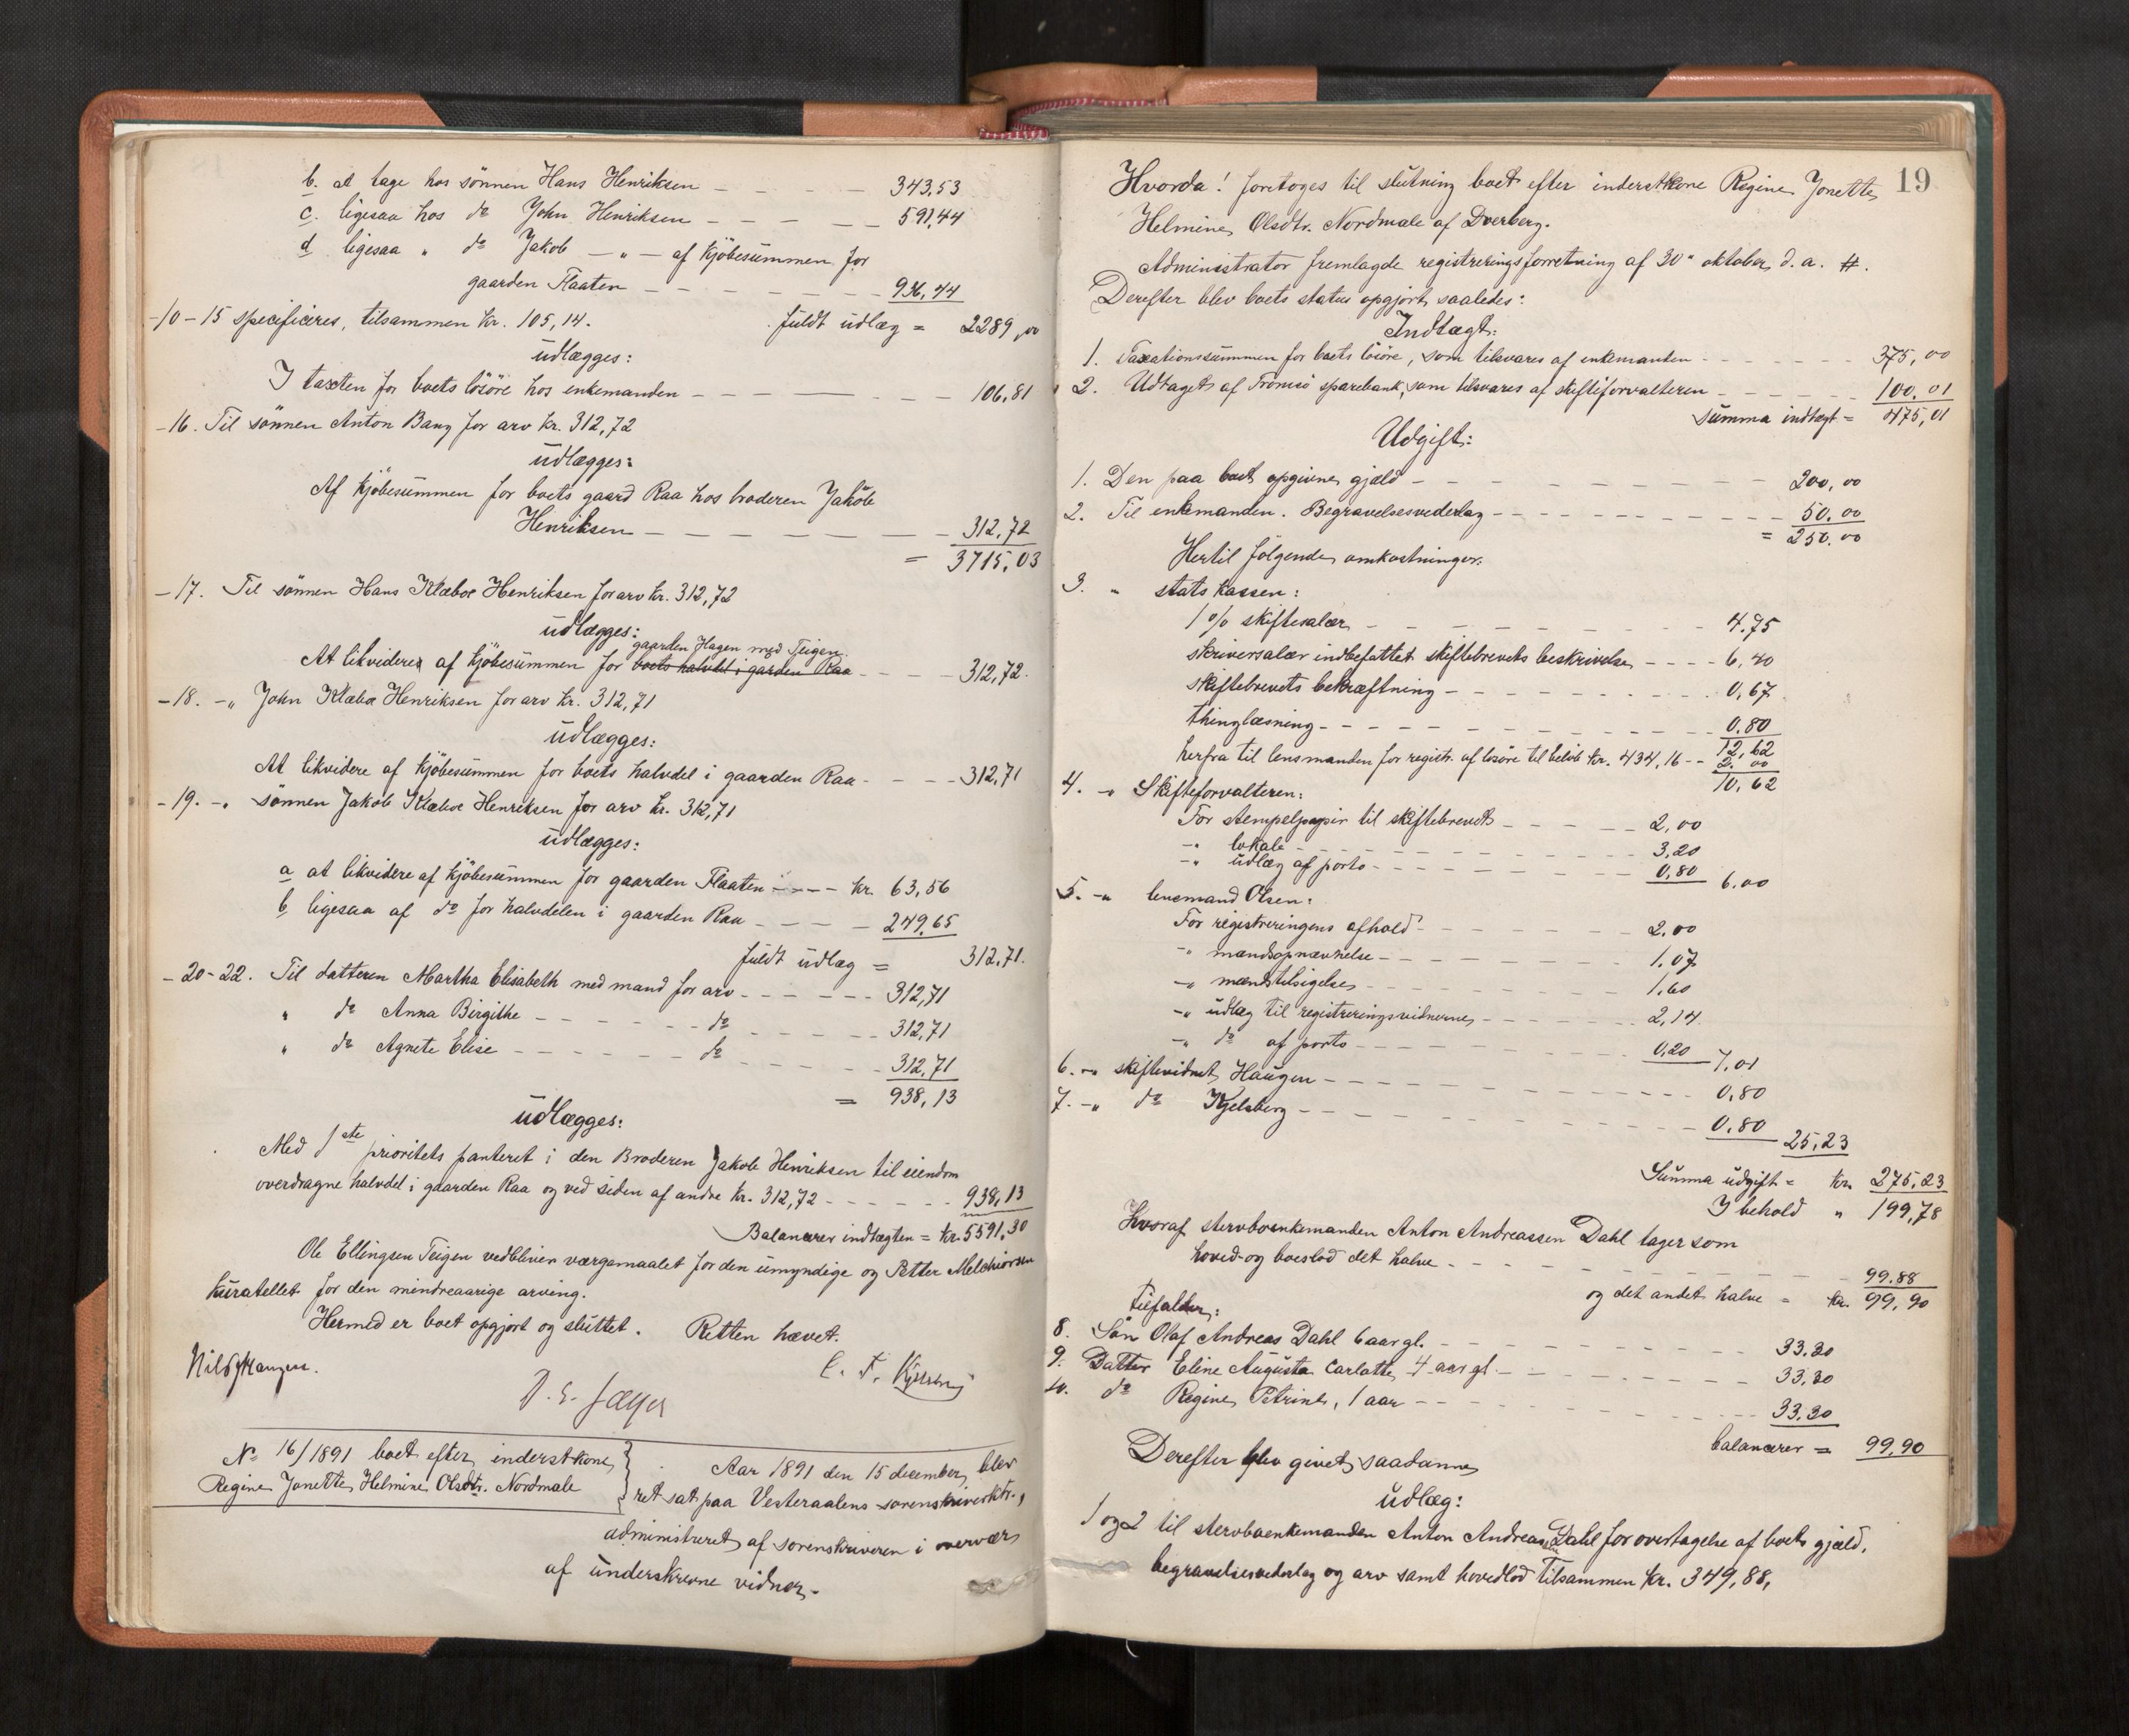 b. at tage hos sönnen Hans Henriksen - - - - 343,53
c. ligesaa hos do John Henriksen - - - - 591,44
d. ligesaa " do Jakob - " - af kjöbesummen for
gaarden Flaaten - - - - - - - 936,44
-10-15 specificeres, tilsammen kr. 105,14. fuldt udlæg = 2289,00
udlægges:
I taxten for boets lösöre hos enkemanden - - - - - - 106,81
-16. Til sönnen Anton Bang for arv kr. 312,72
udlægges:
Af kjöbesummen for boets gaard Raa hos broderen Jakob
Henriksen - - - - - - - 312,72
= 3715,03
-17. Til sönnen Hans Klæboe Henriksen for arv kr. 312,72
udlægges:
gaarden Hagen med Teigen.
At likvideres af kjöbesummen for boets halvdel i garden Raa - - - 312,72.
-18. -" John Klæboe Henriksen for arv kr. 312,71
udlægges:
At likvidere af kjöbesummen for boets halvdel i gaarden Raa - - - - 312,71
-19. -" sönnen Jakob Klæboe Henriksen for arv kr. 312,71
udlægges:
a at likvidere af kjöbesummen for gaarden Flaaten - - - kr. 63,56
b ligesaa af do for halvdelen i gaarden Raa - - - - 249,65
fuldt udlæg = 312,71.
-20-22. Til datteren Martha Elisabeth med mand for arv - - - - - - 312,71
" do Anna Birgithe - - - - - - do - - - - - 312,71
" do Agnete Elise - - - - - - - do - - - - - 312,71
= 938,13
udlægges:
Med 1ste prioritets panteret i den Broderen Jakob Henriksen til eiendom
overdragne halvdel i gaarden Raa og ved siden af andre kr. 312,72 - - - - - - 938,13
Balancerer indtægten = kr. 5591,30
Ole Ellingsen Teigen vedbliver værgemaalet for den umyndige og Petter Melchiorsen
kuratellet for den mindreaarige arving.
Hermed er boet opgjort og sluttet. Retten hævet.
Nils Haugen.
No 16/1891 boet efter inderstkone
Regine Jonette Helmine Olsdtr. Nordmale
Aar 1891 den 15 december, blev
ret sat paa Vesteraalens sorenskriverktr.,
administreret af sorenskriveren i overvær
af underskrevne vidner.
19
Hvorda! foretoges til slutning boet efter inderstkone Regine Jonette
Helmine Olsdtr. Nordmale af Dverberg.
Administrator fremlagde registreringsforretning af 30" oktober d. a. #.
Derefter blev boets status opgjort saaledes:
Indtægt:
1. Taxationssummen for boets lösöre, som tilsvares af enkemanden - - - - - - 375,00
2. Udtaget af Tromsö sparebank, som tilsvares af skifteforvalteren - - - - - - 100,01
summa indtægt = 475,01
Udgift:
1. Den paa boet opgivne gjæld - - - - - - - - - 200,00
2. Til enkemanden. Begravelsesvederlag - - - - - - - - - - 50,00
= 250,00
Hertil følgende omkostninger.
3. " stats kassen:
1 % skiftesalær - - - - - - - - - 4,75
skriversalær indbefattet skiftebrevets beskrivelse - - - - 6,40
skiftebrevets bekræftning - - - - - - - - - 0,67
thinglæsning - - - - - - - - - - - 0,80
12,62
herfra til lensmanden for registr. af lösöre til belöb kr. 434,16 - - 2,00
10,62
4. -" Skifteforvalteren:
For stempelpapir til skiftebrevet - - - - - 2,00
-" lokale - - - - - - - - - - - 3,20
-" udlæg af porto - - - - - - - - 0,80 6,00
5. -" lensmand Olsen:
For registreringens afhold - - - - - - - 2,00
-" mandsopnævnelse - - - - - - - - 1,07
-" mænds tilsigelse - - - - - - - - - 1,60
-" udlæg til registreringsvidnerne - - - - - - 2,14
-" do af porto - - - - - - - - - 0,20 7,01
6. -" skiftevidnet Haugen - - - - - - - - - - - 0,80
7. -" do Kjelsberg - - - - - - - - - - - 0,80 25,23
Summa udgift = kr. 275,23
I behold " 199,78
Hvoraf stervboenkemanden Anton Andreassen Dahl tager som
hoved- og boeslod det halve - - - - - - - - - - 99,88
og det andet halve = kr. 99,90
tilfalder:
8. Sön Olaf Andreas Dahl 6 aar gl. - - - - - - - - 33,30
9. Datter Eline Augusta Carlotte, 4 aar gl. - - - - - - - 33,30
10. do Regine Petrine, 1 aar - - - - - - - - 33,30
balancerer = 99,90
Derefter blev givet saadanne
udlæg:
1 og 2 til stervboenkemanden Anton Andreassen Dahl for overtagelse af boets gjæld,
begravelsesvederlag og arv samt hovedlod tilsammen kr. 349,88,